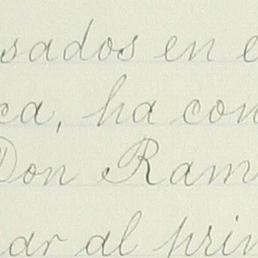 sados en e
ca, ha con
Don Ram
ar al prin